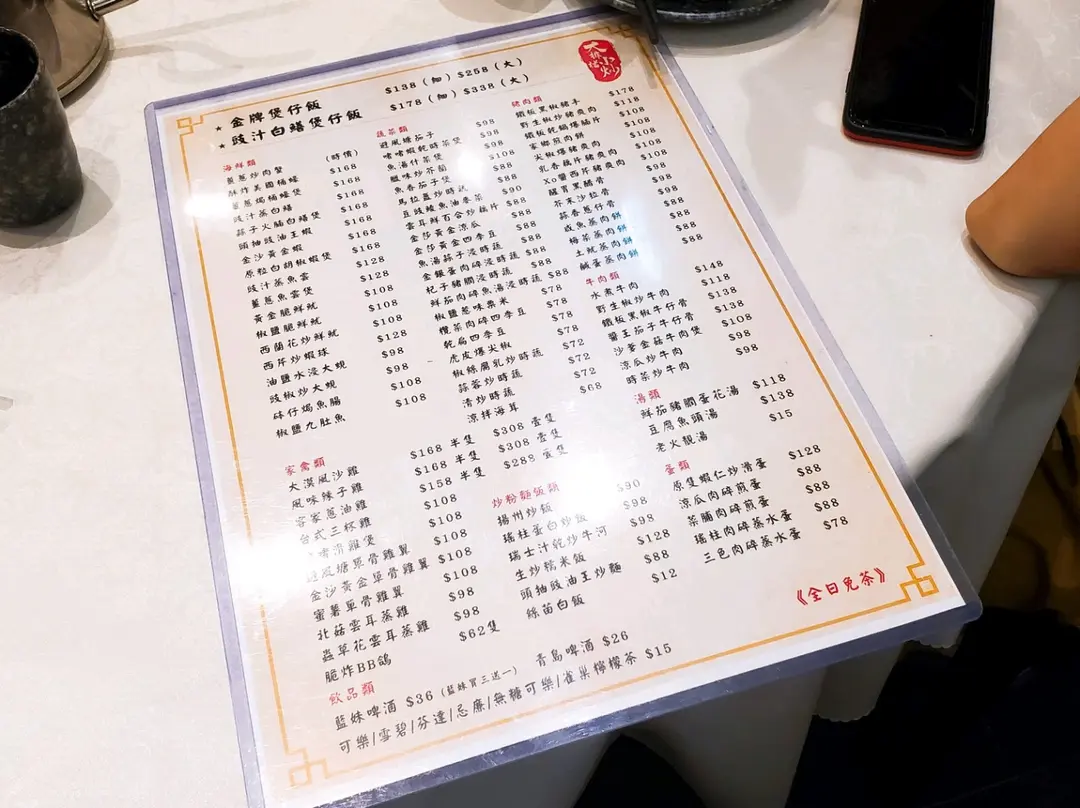 大排檔小炒
★ 金牌煲仔飯 $138 (細) $258 (大)
★ 豉汁白鱔煲仔飯 $178 (細) $338 (大)
海鮮類
薑蔥炒肉蟹
酥炸美國桶蠔
薑蔥焗桶蠔煲
豉汁蒸白鱔
蒜子火腩白鱔煲
頭抽豉油王蝦
金沙黃金蝦
原粒白胡椒蝦煲
豉汁蒸魚雲
薑蔥魚雲煲
黃金脆鮮魷
椒鹽脆鮮魷
西蘭花炒鮮魷
西芹炒蝦球
油鹽水浸大蜆
豉椒炒大蜆
砵仔焗魚腸
椒鹽九肚魚
(時價)
$168
$168
$168
$168
$168
$168
$128
$128
$108
$108
$128
$98
$108
$108
蔬菜類
避風塘茄子
啫啫蝦乾時菜煲
魚湯什菜煲
臘味炒芥蘭
魚香茄子煲
馬拉盞炒時蔬
豆豉鯪魚油麥菜
雲耳鮮百合炒藕片
金莎黃金涼瓜
金莎黃金四季豆
魚湯蒜子浸時蔬
金銀蛋肉碎浸時蔬
杞子豬膶浸時蔬
鮮茄肉碎魚湯浸時蔬
椒鹽蔥味粟米
欖菜肉碎四季豆
乾扁四季豆
虎皮爆尖椒
椒絲腐乳炒時蔬
蒜蓉炒時蔬
清炒時蔬
涼拌海耳
$98
$98
$98
$108
$98
$90
$88
$88
$88
$88
$88
$88
$78
$78
$78
$72
$72
$68
豬肉類
鐵板黑椒豬手
野生椒炒豬爽肉
鐵板乾鍋爆腩片
家鄉煎肉餅
尖椒爆豬爽肉
乳香藕片豬爽肉
Xo醬西芹豬爽肉
醒胃黑醋骨
芥末沙拉骨
蒜香蔥仔骨
咸魚蒸肉餅
梅菜蒸肉餅
土魷蒸肉餅
鹹蛋蒸肉餅
$178
$118
$108
$108
$108
$108
$98
$98
$98
$88
$88
$88
牛肉類
水煮牛肉 $148
野生椒炒牛肉 $118
鐵板黑椒牛仔骨 $138
醬王茄子牛仔骨 $138
沙爹金菇牛肉煲 $108
涼瓜炒牛肉 $98
時菜炒牛肉 $98
湯類
鮮茄豬膶蛋花湯 $118
豆腐魚頭湯 $138
老火靚湯 $15
家禽類
大漠風沙雞 $168 半隻 $308 壹隻
風味辣子雞 $168 半隻 $308 壹隻
客家蔥油雞 $158 半隻 $288 壹隻
台式三杯雞 $108
啫滑雞煲 $108
避風塘單骨雞翼 $108
金沙黃金單骨雞翼 $108
蜜薯單骨雞翼 $108
北菇雲耳蒸雞 $98
蟲草花雲耳蒸雞 $98
脆炸BB鴿 $62隻
炒粉麵飯類
揚州炒飯 $90
瑤柱蛋白炒飯 $98
瑞士汁乾炒牛河 $98
生炒糯米飯 $128
頭抽豉油王炒麵 $88
絲苗白飯 $12
蛋類
原隻蝦仁炒滑蛋 $128
涼瓜肉碎煎蛋 $88
菜脯肉碎煎蛋 $88
瑤柱肉碎蒸水蛋 $88
三色肉碎蒸水蛋 $78
《全日免茶》
飲品類
藍妹啤酒 $36 (藍妹買三送一) 青島啤酒 $26
可樂/雪碧/芬達/忌廉/無糖可樂/雀巢檸檬茶 $15